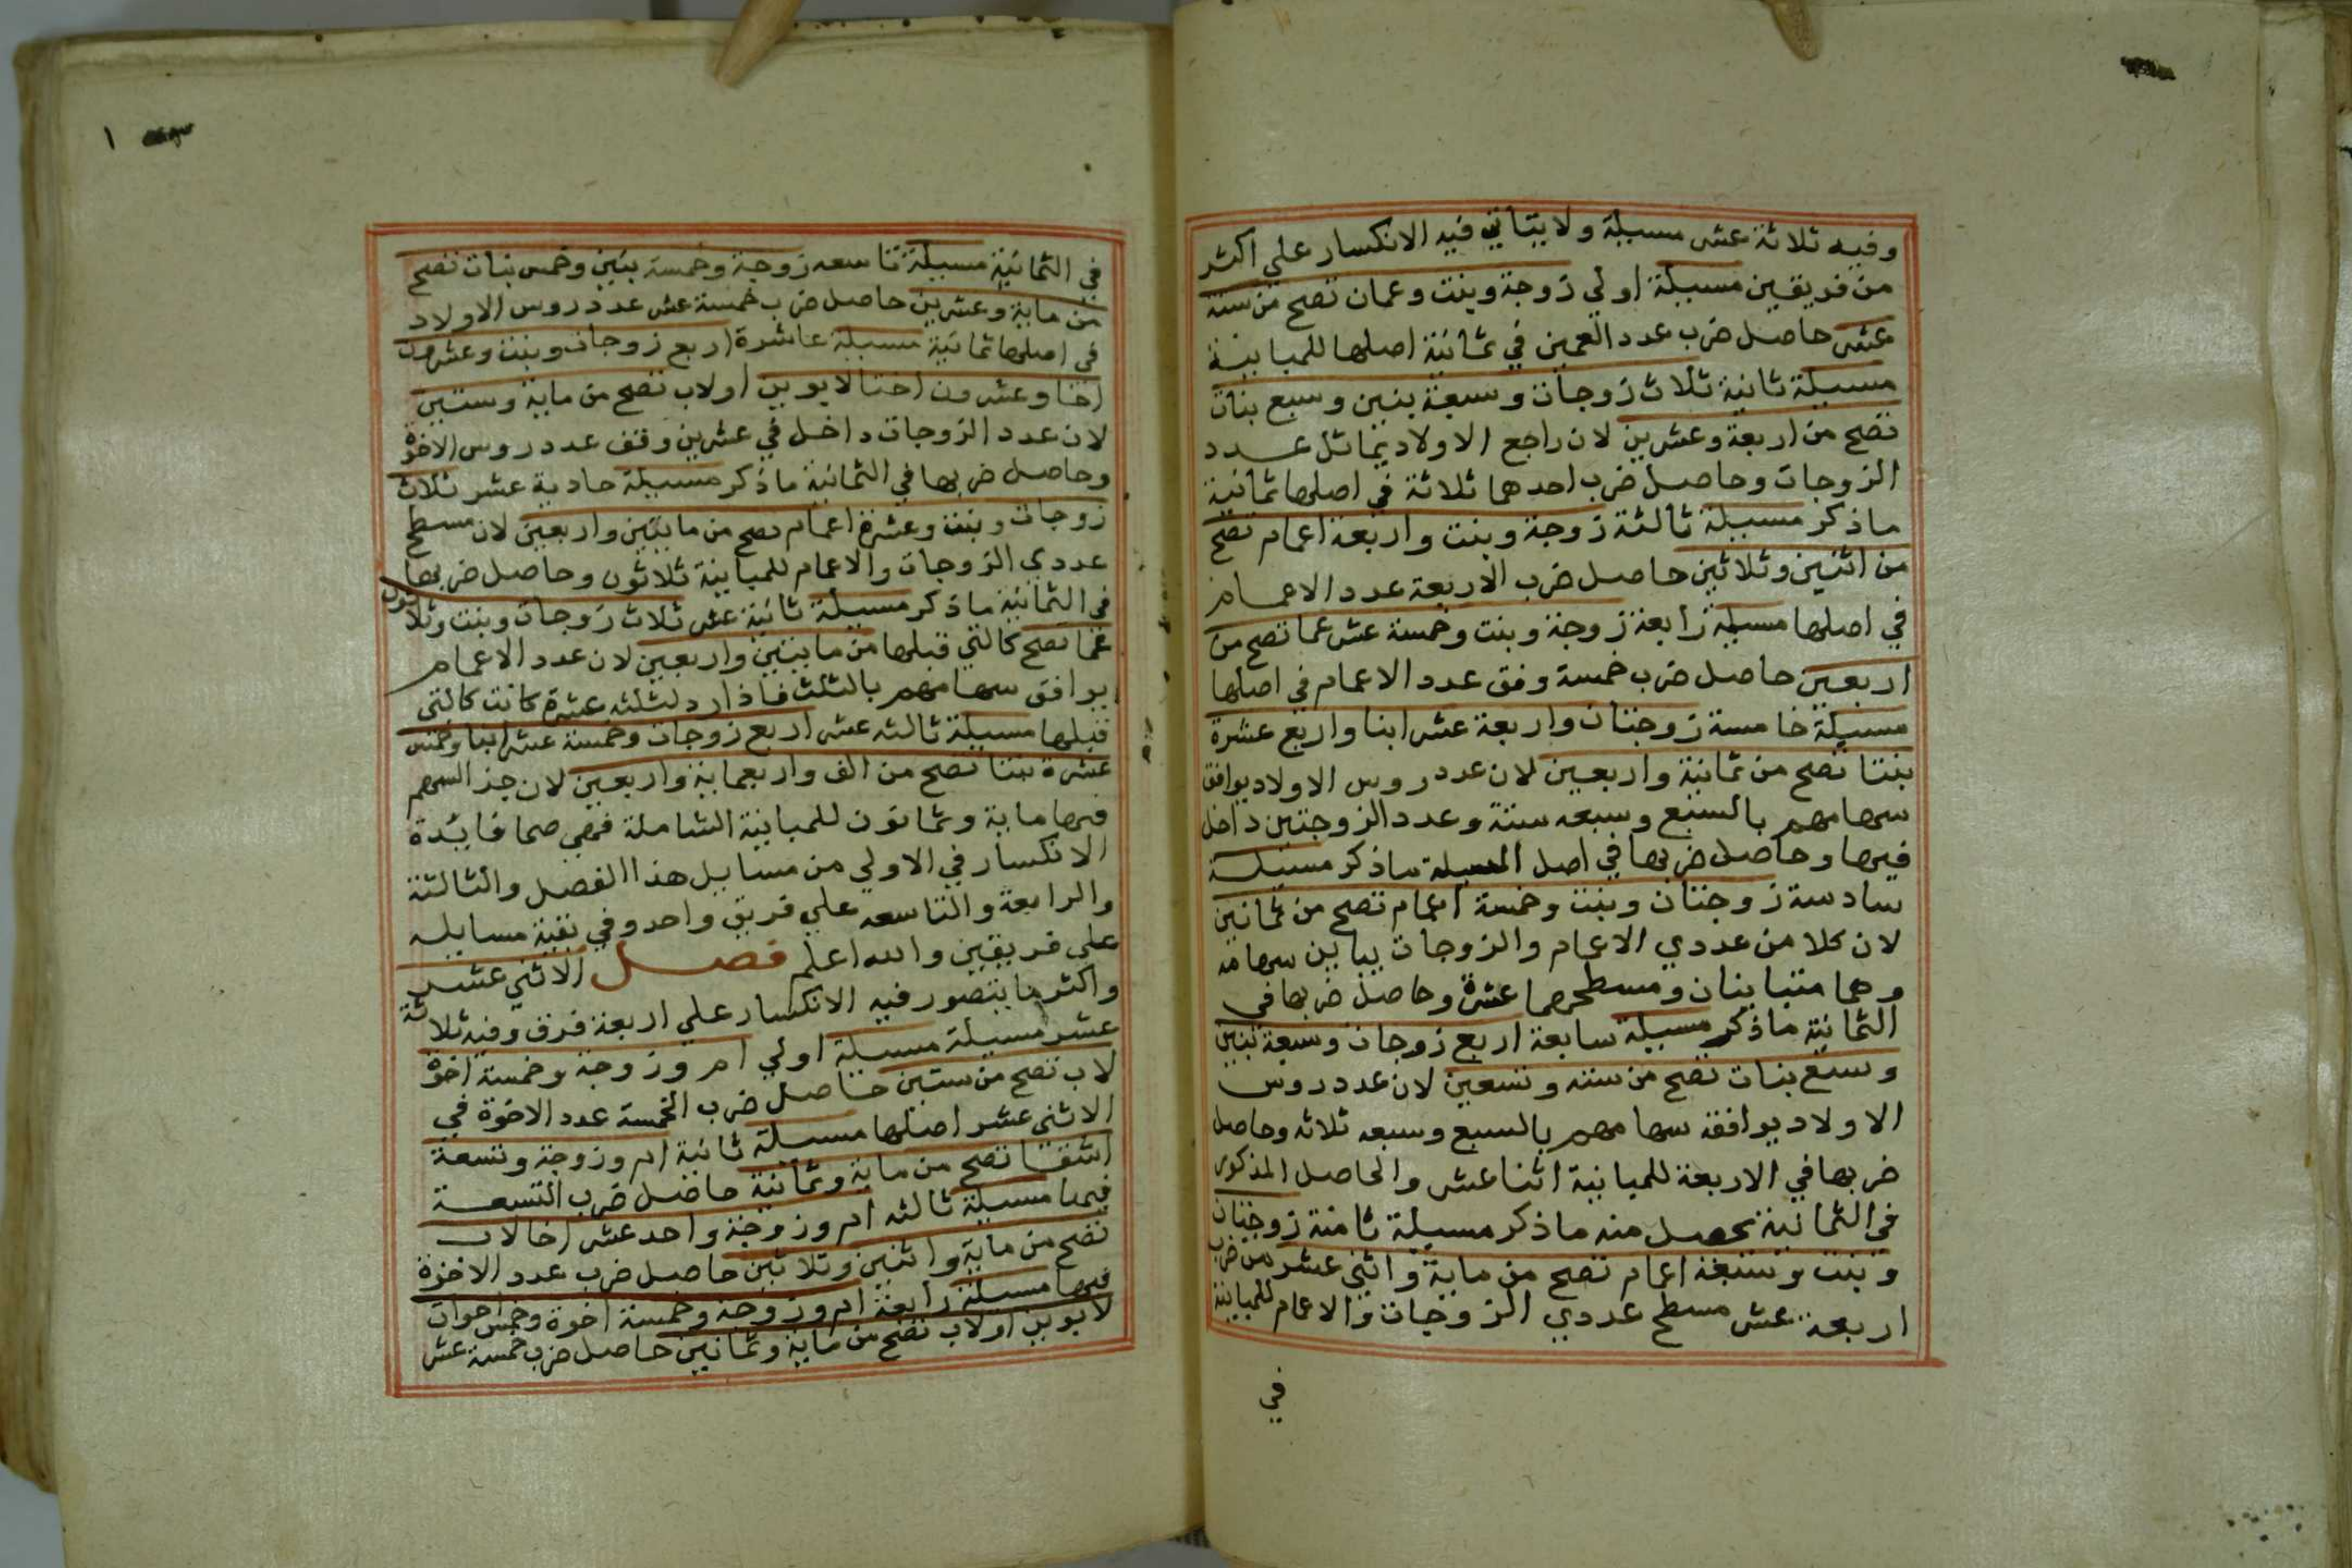 وفيه ثلاثة عشر مسيلة ولا يتاتي فيه الانكسار علي اكثر
من فريقين مسيلة اولي زوجة وبنت وعمان تصح من ستة
عشر حاصل ضرب عدد العمين في ثمانية اصلها للمباينة
مسيلة ثانية ثلاث زوجات وسبعة بنين وسبع بنات
تصح من اربعة وعشرين لان راجع الاولاد يماثل عدد
الزوجات وحاصل ضرب احدهما ثلاثة في اصلها ثمانية
ما ذكر مسيلة ثالثة زوجة وبنت واربعة اعمام تصح
من اثنين وثلاثين حاصل ضرب الاربعة عدد الاعمام
في اصلها مسيلة رابعة زوجة وبنت وخمسة عشر عما تصح من
اربعين حاصل ضرب خمسة وفق عدد الاعمام في اصلها
مسيلة خامسة زوجتان واربعة عشر ابنا واربع عشرة
بنتا تصح من ثمانية واربعين لان عدد روس الاولاد يوافق
سهامهم بالسبع وسبعه ستة وعدد الزوجتين داخل
فيها وحاصل ضربها في اصل المسيلة ماذكر مسيلة
سادسة زوجتان وبنت وخمسة اعمام تصح من ثمانين
لان كلا من عددي الاعمام والزوجات يباين سهامه
وهما متباينان ومسطحهما عشرة وحاصل ضربها في
الثمانية ماذكر مسيلة سابعة اربع زوجات وسبعة بنين
وسبع بنات تصح من ستة وتسعين لان عدد روس
الاولاد يوافقه سهامهم بالسبع وسبعه ثلاثه وحاصل
ضربها في الاربعة للمباينة اثنا عشر والحاصل المذكور
في الثمانية يحصل منه ماذكر مسيلة ثامنة زوجتان
وبنت وسبعة اعمام تصح من ماية واثني عشر من ضرب
اربعة عشر مسطح عددي الزوجات والاعمام للمباينة
في
١
في الثمانية مسيلة تاسعه زوجة وخمسة بنين وخمس بنات تصح
من ماية وعشرين حاصل ضرب خمسة عشر عدد روس الاولاد
في اصلها ثمانية مسيلة عاشرة اربع زوجات وبنت وعشرون
اخا وعشرون اختا لابوين اولاب تصح من ماية وستين
لان عدد الزوجات داخل في عشرين وفق عدد روس الاخوة
وحاصل ضربها في الثمانية ماذكر مسيلة حادية عشر ثلاث
زوجات وبنت وعشرة اعمام تصح من مايتين واربعين لان مسطح
عددي الزوجات والاعمام للمباينة ثلاثون وحاصل ضربها
في الثمانية ماذكر مسيلة ثانية عشر ثلاث زوجات وبنت وثلاثون
عما تصح كالتي قبلها من مايتين واربعين لان عدد الاعمام
يوافق سهامهم بالثلث فاذا رد لثلثه عشرة كانت كالتي
قبلها مسيلة ثالثه عشر اربع زوجات وخمسة عشر ابنا وخمس
عشرة بنتا تصح من الف واربعماية واربعين لان جز السهم
فيها ماية وثمانون للمباينة الشاملة فهي صما فايدة
الانكسار في الاولي من مسايل هذا الفصل والثالثة
والرابعة والتاسعه علي فريق واحد وفي بقية مسايله
علي فريقين والله اعلم فصل الاثني عشر
واكثر ما يتصور فيه الانكسار علي اربعة فرق وفيه ثلاثة
عشر مسيلة مسيلة اولي ام وزوجة وخمسة اخوة
لاب تصح من ستين حاصل ضرب الخمسة عدد الاخوة في
الاثني عشر اصلها مسيلة ثانية ام وزوجة وتسعة
اشقا تصح من ماية وثمانية حاصل ضرب التسعة
فيها مسيلة ثالثه ام وزوجة واحد عشر اخا لاب
تصح من ماية واثنين وثلاثين حاصل ضرب عدد الاخوة
فيها مسيلة رابعة ام وزوجة وخمسة اخوة وخمس اخوات
لابوين اولاب تصح من ماية وثمانين حاصل ضرب خمسة عشر